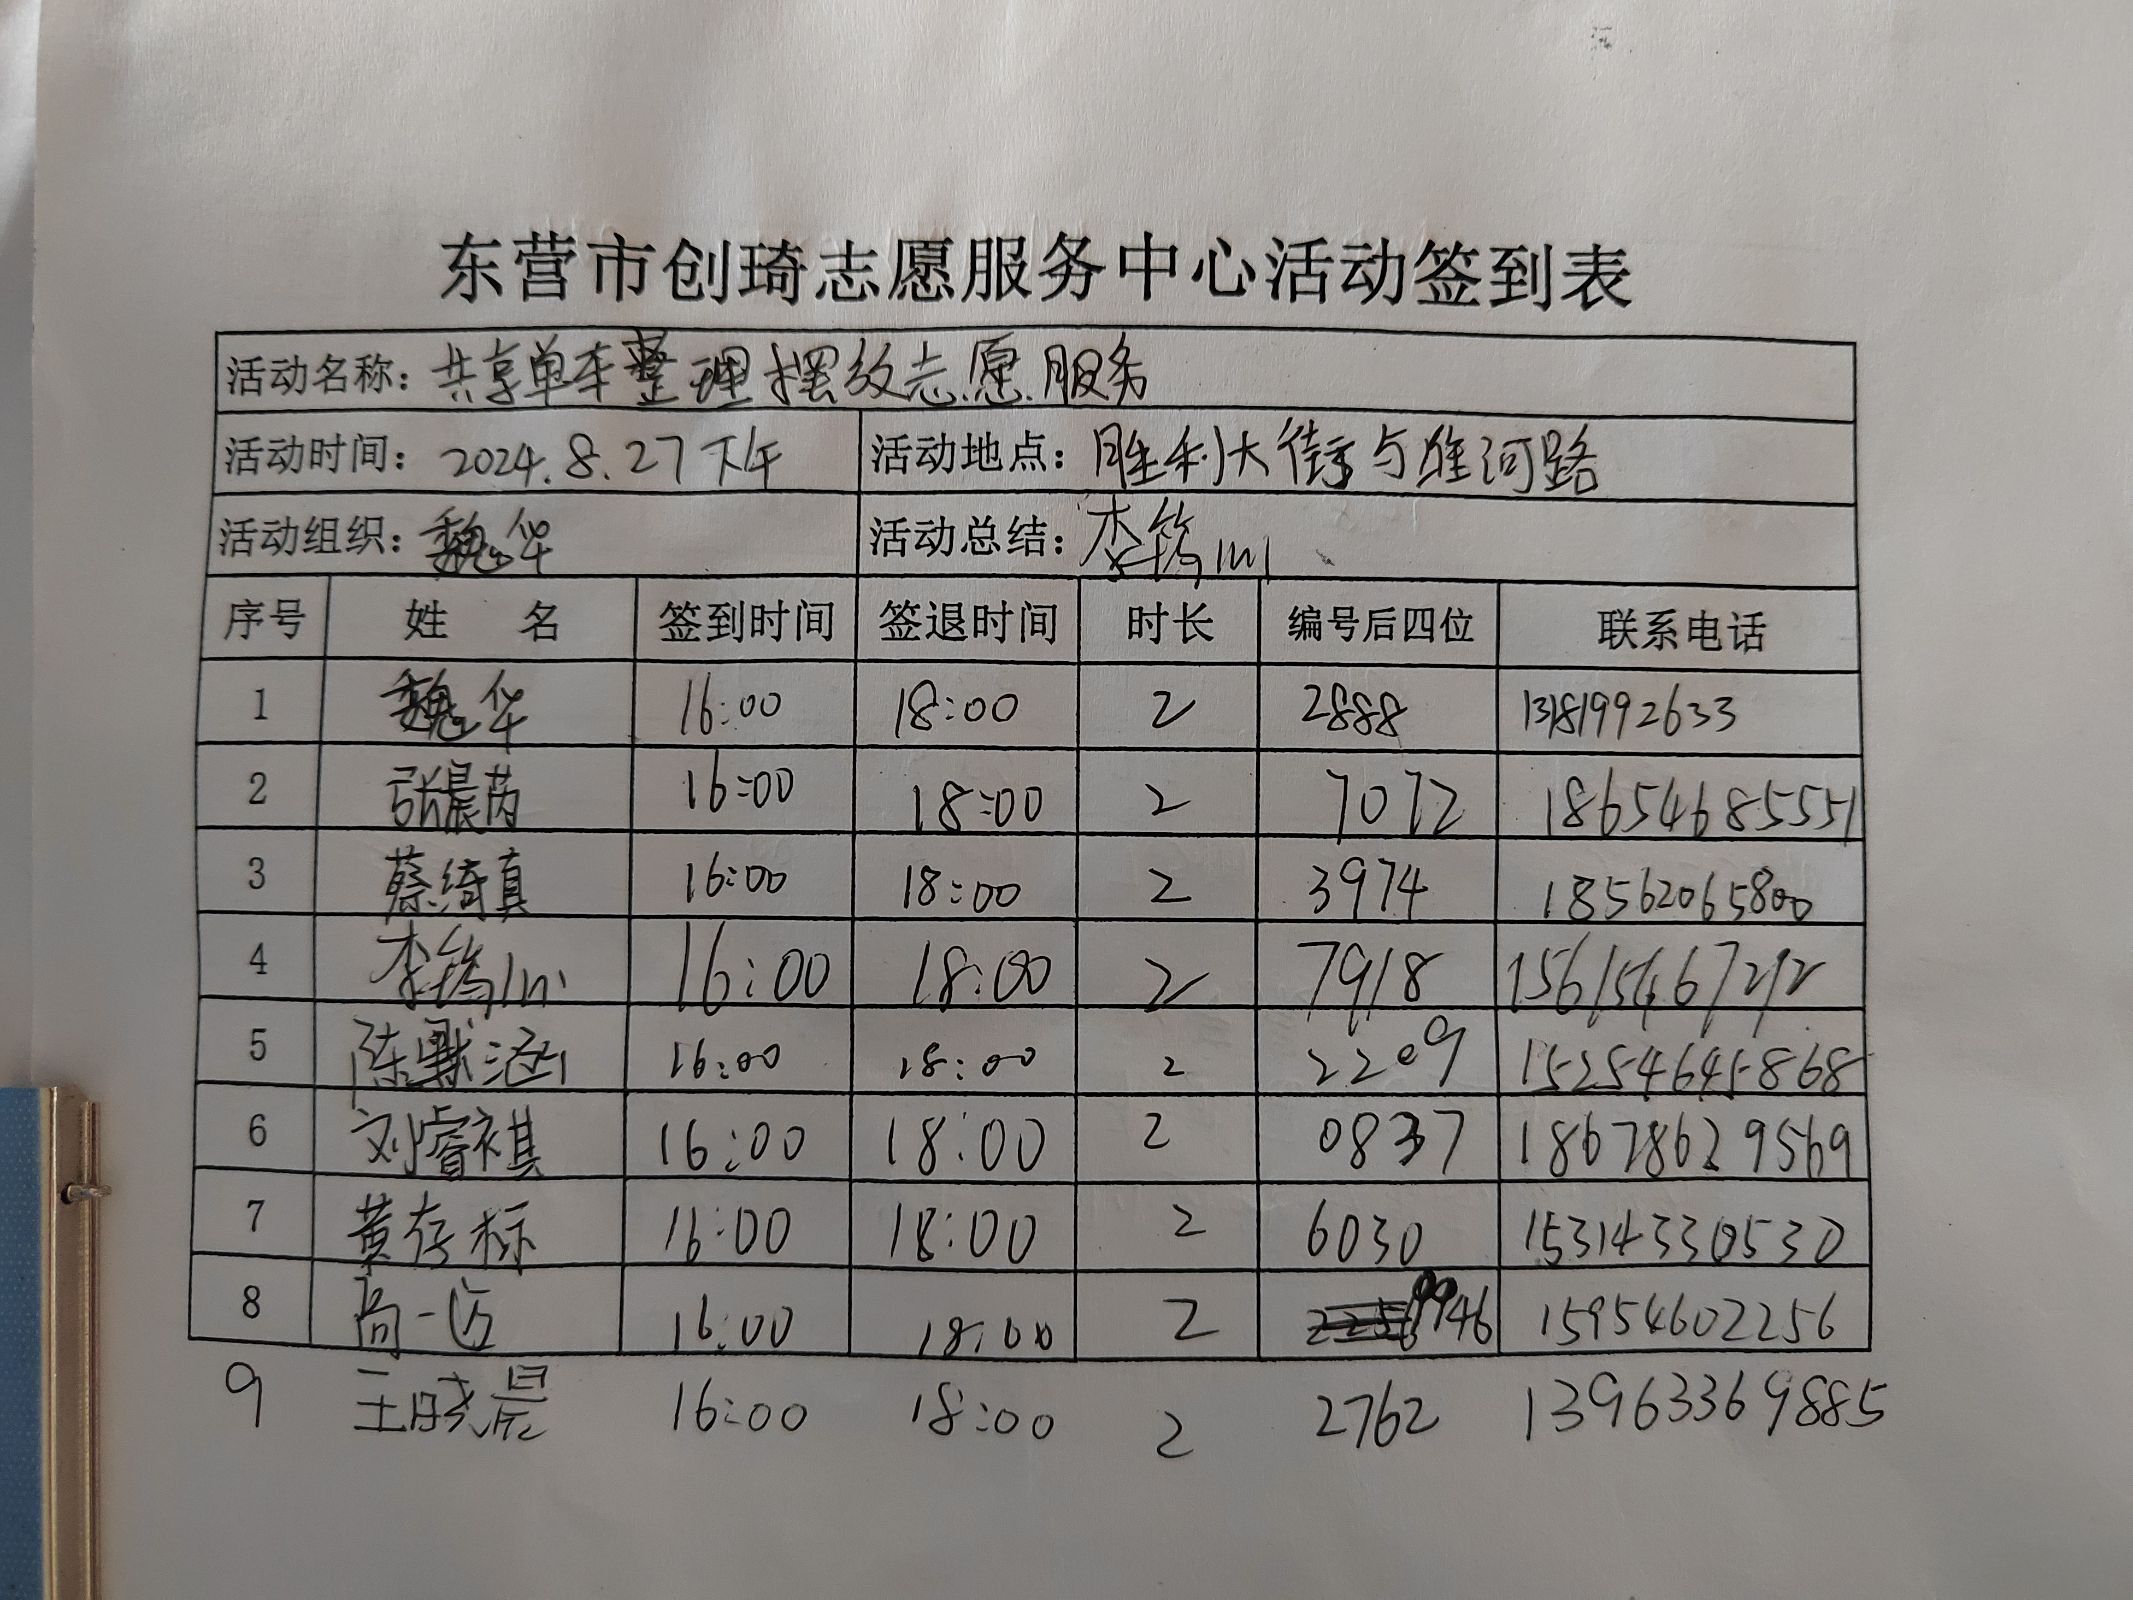 东营市创琦志愿服务中心活动签到表
活动名称：共享单车整理摆放志愿服务
活动时间：2024.8.27下午 活动地点：胜利大街与淮河路
活动组织：魏华 活动总结：李筠
序号 姓 名 签到时间 签退时间 时长 编号后四位 联系电话
1 魏华 16:00 18:00 2 2888 13181992633
2 张晨芮 16:00 18:00 2 7072 18654685551
3 蔡绮真 16:00 18:00 2 3974 18562065800
4 李筠 16:00 18:00 2 7918 15615467212
5 陈默涵 16:00 18:00 2 2209 15254645868
6 刘睿祺 16:00 18:00 2 0837 18678629569
7 黄存标 16:00 18:00 2 6030 15314330530
8 高一迈 16:00 18:00 2 9946 15954602256
9 王晓晨 16:00 18:00 2 2762 13963369885